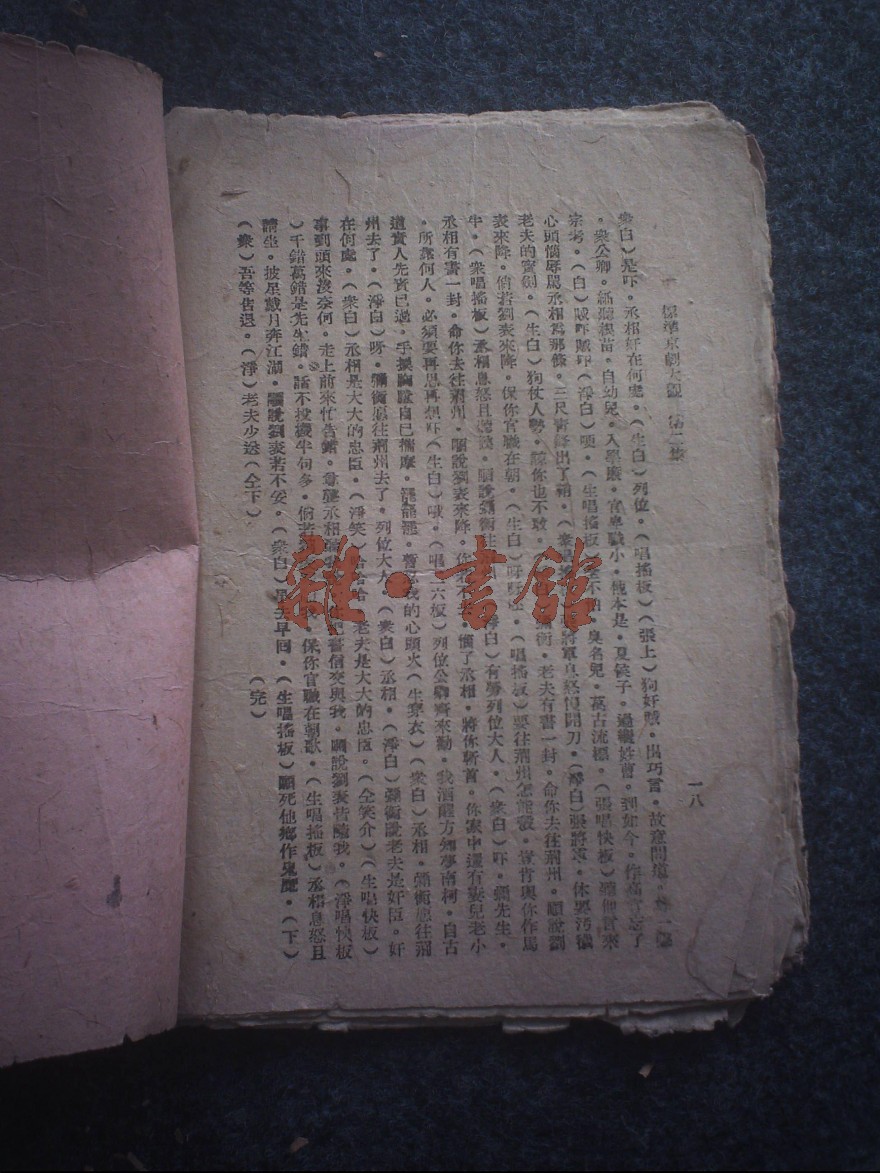 標準京劇大觀 第二集
一八
衆白）是吓。丞相奸在何處。（生白）列位。（唱搖板）（張上）狗奸賊。出巧言。故意問道。
。衆公卿。細聽根苗。自幼兒。入學廳。官卑職小。他本是。夏侯子。過繼姓曹。到如今。作高官忘了
宗考。（白）賊吓賊吓（淨白）唗。（生唱搖板）臭名兒。萬古流標。（張唱快板）聽他言來
心頭惱辱罵丞相爲那條。三尺青鋒出了鞘。張將軍息怒慢開刀。（淨白）張將軍。休要汚穢
老夫的寶劍。（生白）狗仗人勢。諒你也不敢。老夫有書一封。命你去往荊州。順說劉
表來降。倘若劉表來降。保你官職在朝。（生白）呀呀呸。（唱搖板）要往荊州怎能彀。豈肯與你作馬
牛。（衆唱搖板）丞相息怒且饒恕。順說（淨白）有勞列位大人。（衆白）吓。禰先生。
丞相有書一封。命你去往荊州。順說劉表來降。你若不去。惱了丞相。將你斬首。你家中還有妻兒老小
。所靠何人。必須要再思再想吓（生白）哦。（唱二六板）列位公卿齊來勸。我酒醒方知夢南柯。自古
道責人先責己過。手摸胸膛自己揣摩。罷罷罷。暫忍我的心頭火（生穿衣）（衆白）丞相。禰衡愿往荊
州去了。（淨白）呀。禰衡愿往荊州去了。列位大人。（衆白）丞相。（淨白）禰衡說老夫是奸臣。奸
在何處。（衆白）丞相是大大的忠臣。（淨笑）哈哈哈。老夫是大大的忠臣。（仝笑介）（生唱快板）
事到頭來沒奈何。走上前來忙告錯。尊聲丞相聽我把書信交與我。順說劉表皆聽我。（淨唱快板
）千錯萬錯是先生錯。話不投機半句多。倘若保你官職在朝歌。（生唱搖板）丞相息怒且
請坐。披星戴月奔江湖。順說劉表若不妥。（衆白）早去早回。（生唱搖板）願死他鄉作鬼魔。（下）
（衆）吾等告退。（淨）老夫少送（仝下）
（完）
雜·書館